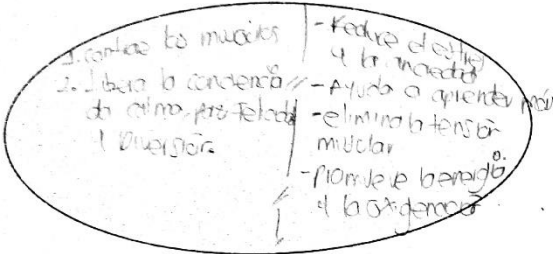 1. contrae los musculos
2. Libera la conciencia
da calma, para felicidad
y Diversión.
- Reduce el estres
y la ansiedad
- Ayuda a aprender más
- elimina la tensión
muscular
- promueve la energía
y la oxigenación